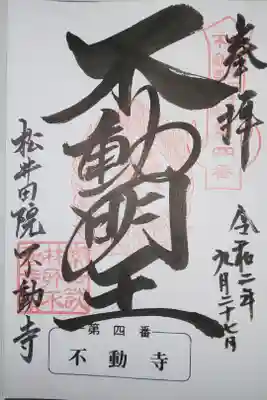 奉拝
令和二年
九月二十七日
不動明王
松井田院不動寺
第四番
不動寺